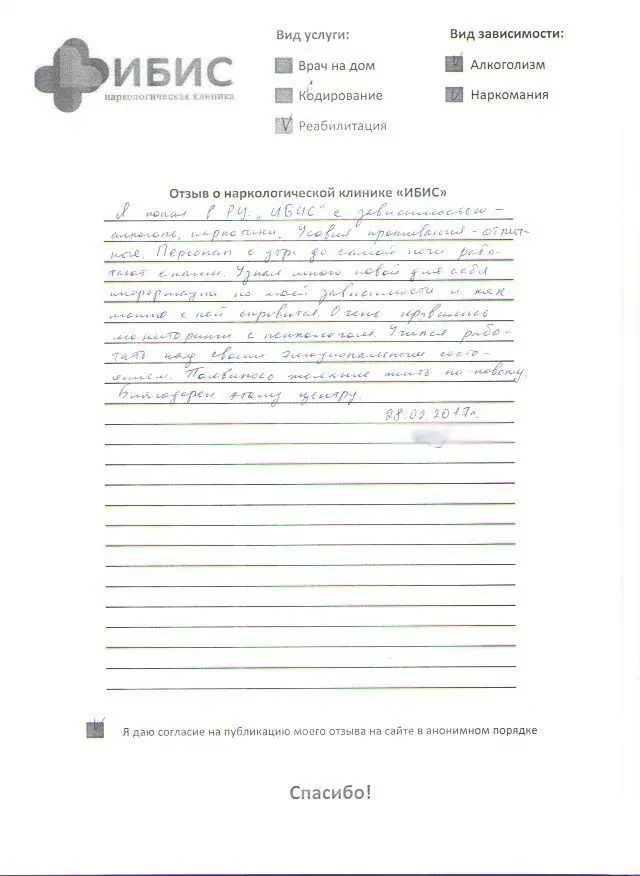 ИБИС
наркологическая клиника
Вид услуги:
Врач на дом
Кодирование
Реабилитация
Вид зависимости:
Алкоголизм
Наркомания
Отзыв о наркологической клинике «ИБИС»
Я попал в РЦ "ИБИС" с зависимостью -
алкоголь, наркотики. Условия проживания - отлич-
ные. Персонал с утра до самой ночи рабо-
тают с нами. Узнал много новой для себя
информации по моей зависимости и как
можно с ней справится. Очень нравились
мониторинги с психологом. Учился рабо-
тать над своим эмоциональным состо-
янием. Появилось желание жить по-новому.
Благодарен этому центру.
28.09.2017г.
Я даю согласие на публикацию моего отзыва на сайте в анонимном порядке
Спасибо!